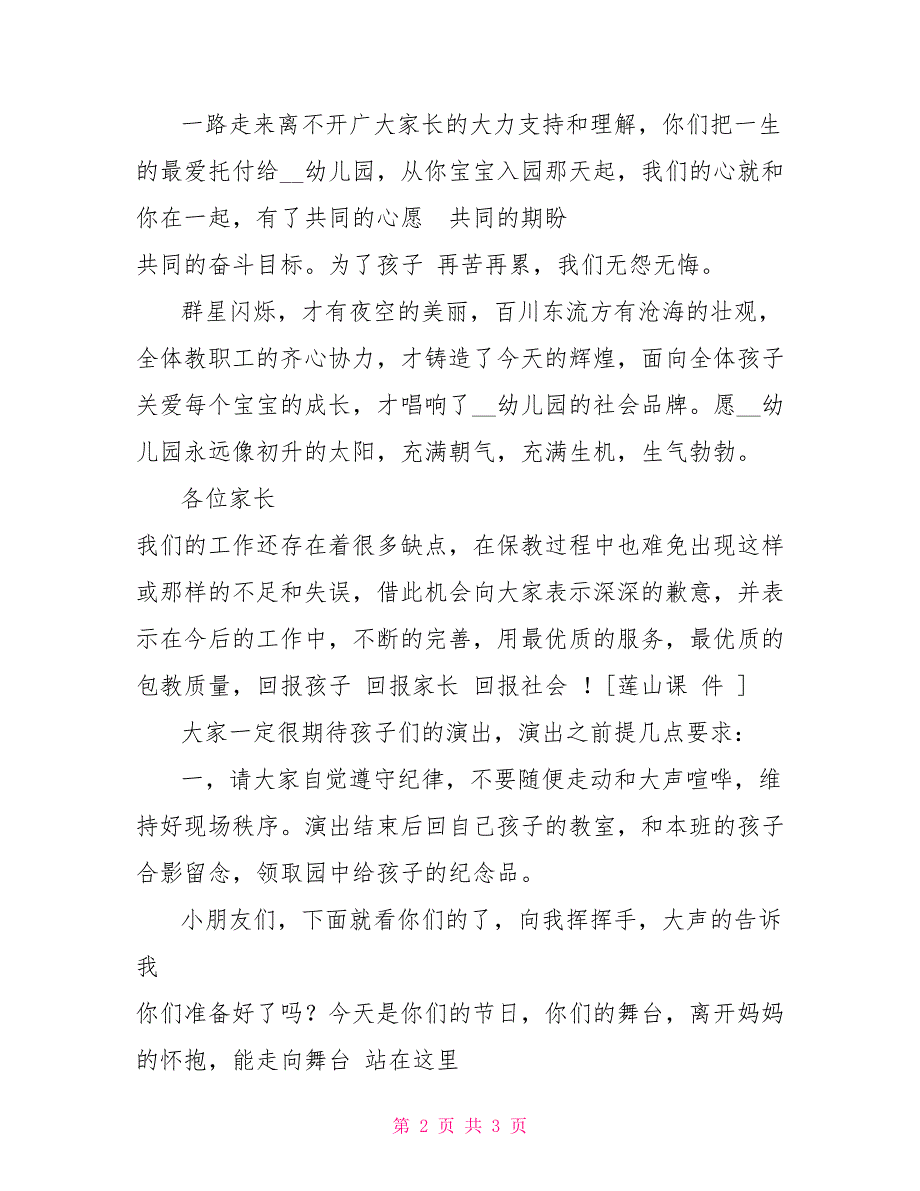 一路走来离不开广大家长的大力支持和理解，你们把一生
的最爱托付给__幼儿园，从你宝宝入园那天起，我们的心就和
你在一起，有了共同的心愿　共同的期盼
共同的奋斗目标。为了孩子 再苦再累，我们无怨无悔。
群星闪烁，才有夜空的美丽，百川东流方有沧海的壮观，
全体教职工的齐心协力，才铸造了今天的辉煌，面向全体孩子
关爱每个宝宝的成长，才唱响了__幼儿园的社会品牌。愿__幼
儿园永远像初升的太阳，充满朝气，充满生机，生气勃勃。
各位家长
我们的工作还存在着很多缺点，在保教过程中也难免出现这样
或那样的不足和失误，借此机会向大家表示深深的歉意，并表
示在今后的工作中，不断的完善，用最优质的服务，最优质的
包教质量，回报孩子 回报家长 回报社会 ！[莲山课 件 ]
大家一定很期待孩子们的演出，演出之前提几点要求：
一，请大家自觉遵守纪律，不要随便走动和大声喧哗，维
持好现场秩序。演出结束后回自己孩子的教室，和本班的孩子
合影留念，领取园中给孩子的纪念品。
小朋友们，下面就看你们的了，向我挥挥手，大声的告诉
我
你们准备好了吗？今天是你们的节日，你们的舞台，离开妈妈
的怀抱，能走向舞台 站在这里
第 2 页 共 3 页